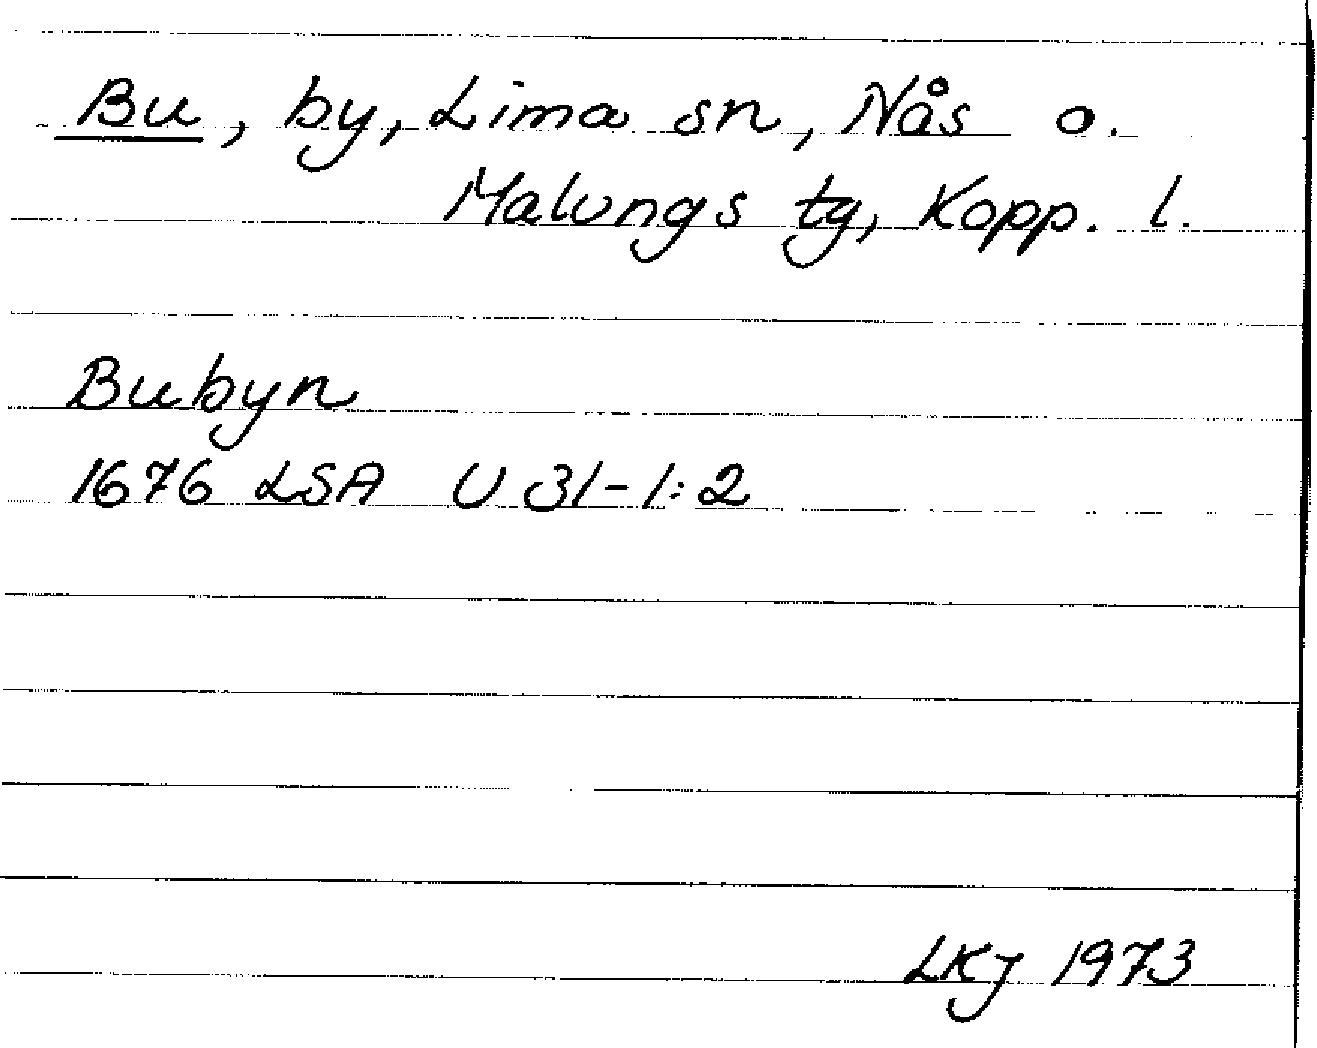 Bu, by, Lima sn, Nås o.
Malungs tg, Kopp. l.
Bubyn
1676 LSA U 31-1:2
LKJ 1973